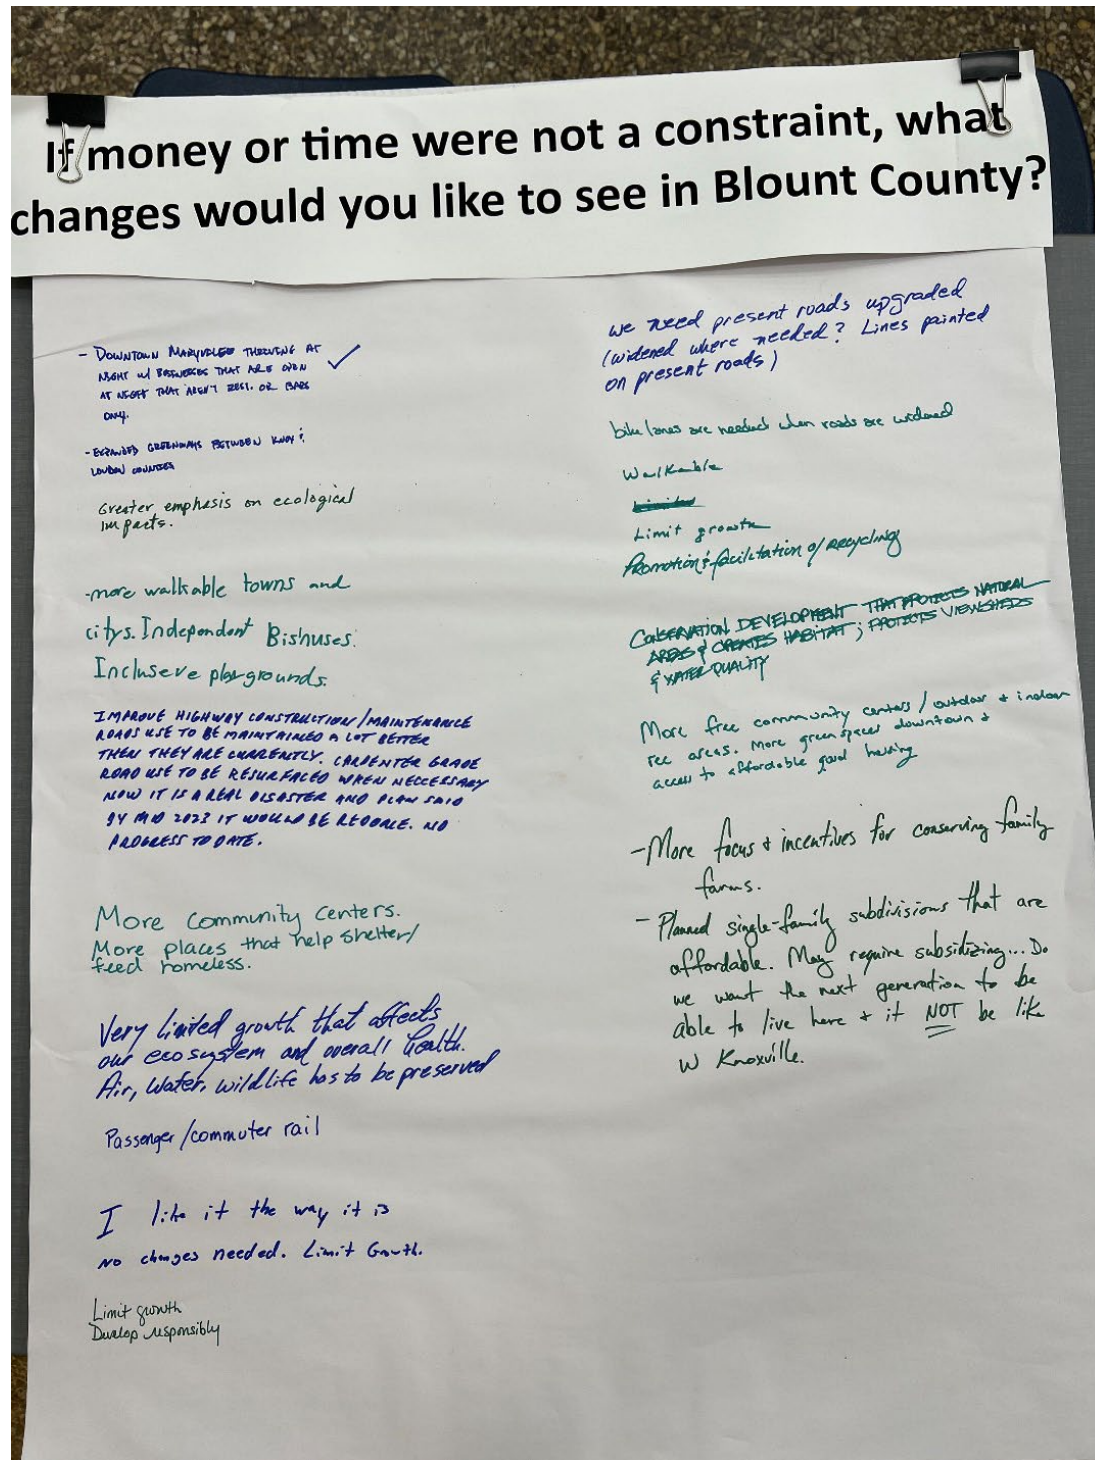 If money or time were not a constraint, what
changes would you like to see in Blount County?
- DOWNTOWN MARYVILLE THRIVING AT
NIGHT w/ BUSINESSES THAT ARE OPEN
AT NIGHT THAT AREN'T REST. OR BARS
ONLY.
- EXPANDED GREENWAYS BETWEEN KNOX &
LOUDON COUNTIES
Greater emphasis on ecological
impacts.
-more walkable towns and
citys. Independent Bisnuses.
Incluseve playgrounds.
IMPROVE HIGHWAY CONSTRUCTION/MAINTENANCE
ROADS USE TO BE MAINTAINED A LOT BETTER
THEN THEY ARE CURRENTLY. CARPENTER GRADE
ROAD USE TO BE RESURFACED WHEN NECCESSARY
NOW IT IS A REAL DISASTER AND PLAN SAID
BY MID 2023 IT WOULD BE REDONE. NO
PROGRESS TO DATE.
More Community Centers.
More places that help shelter/
feed homeless.
Very limited growth that affects
our ecosystem and overall health.
Air, Water, wildlife has to be preserved
Passenger/commuter rail
I like it the way it is
No changes needed. Limit Growth.
Limit growth
Develop responsibly
we need present roads upgraded
(widened where needed? Lines painted
on present roads)
bike lanes are needed when roads are widened
Walkable
Limit growth
Promotion & facilitation of recycling
CONSERVATION DEVELOPMENT THAT PROTECTS NATURAL
AREAS & CREATES HABITAT; PROTECTS VIEWSHEDS
& WATER QUALITY
More free community centers / outdoor + indoor
rec areas. More green spaces downtown +
access to affordable good housing
-More focus + incentives for conserving family
farms.
- Planned single-family subdivisions that are
affordable. May require subsidizing... Do
we want the next generation to be
able to live here + it NOT be like
W Knoxville.